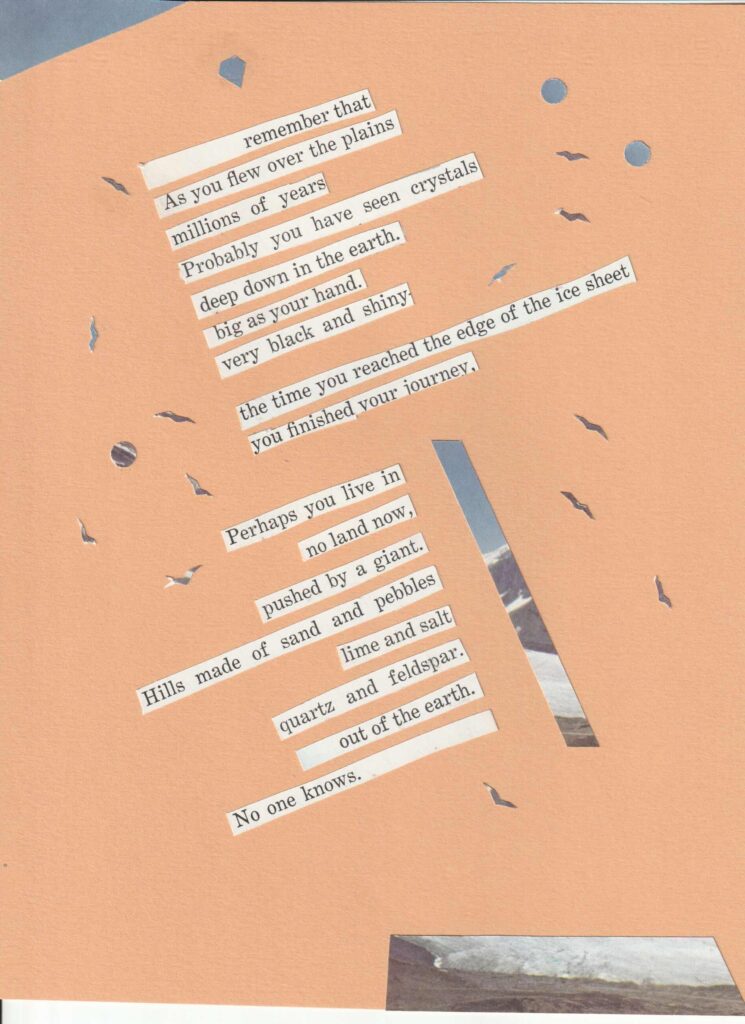 remember that
As you flew over the plains
millions of years
Probably you have seen crystals
deep down in the earth.
big as your hand.
very black and shiny.
the time you reached the edge of the ice sheet
you finished your journey,
Perhaps you live in
no land now,
pushed by a giant.
Hills made of sand and pebbles
lime and salt
quartz and feldspar.
out of the earth.
No one knows.